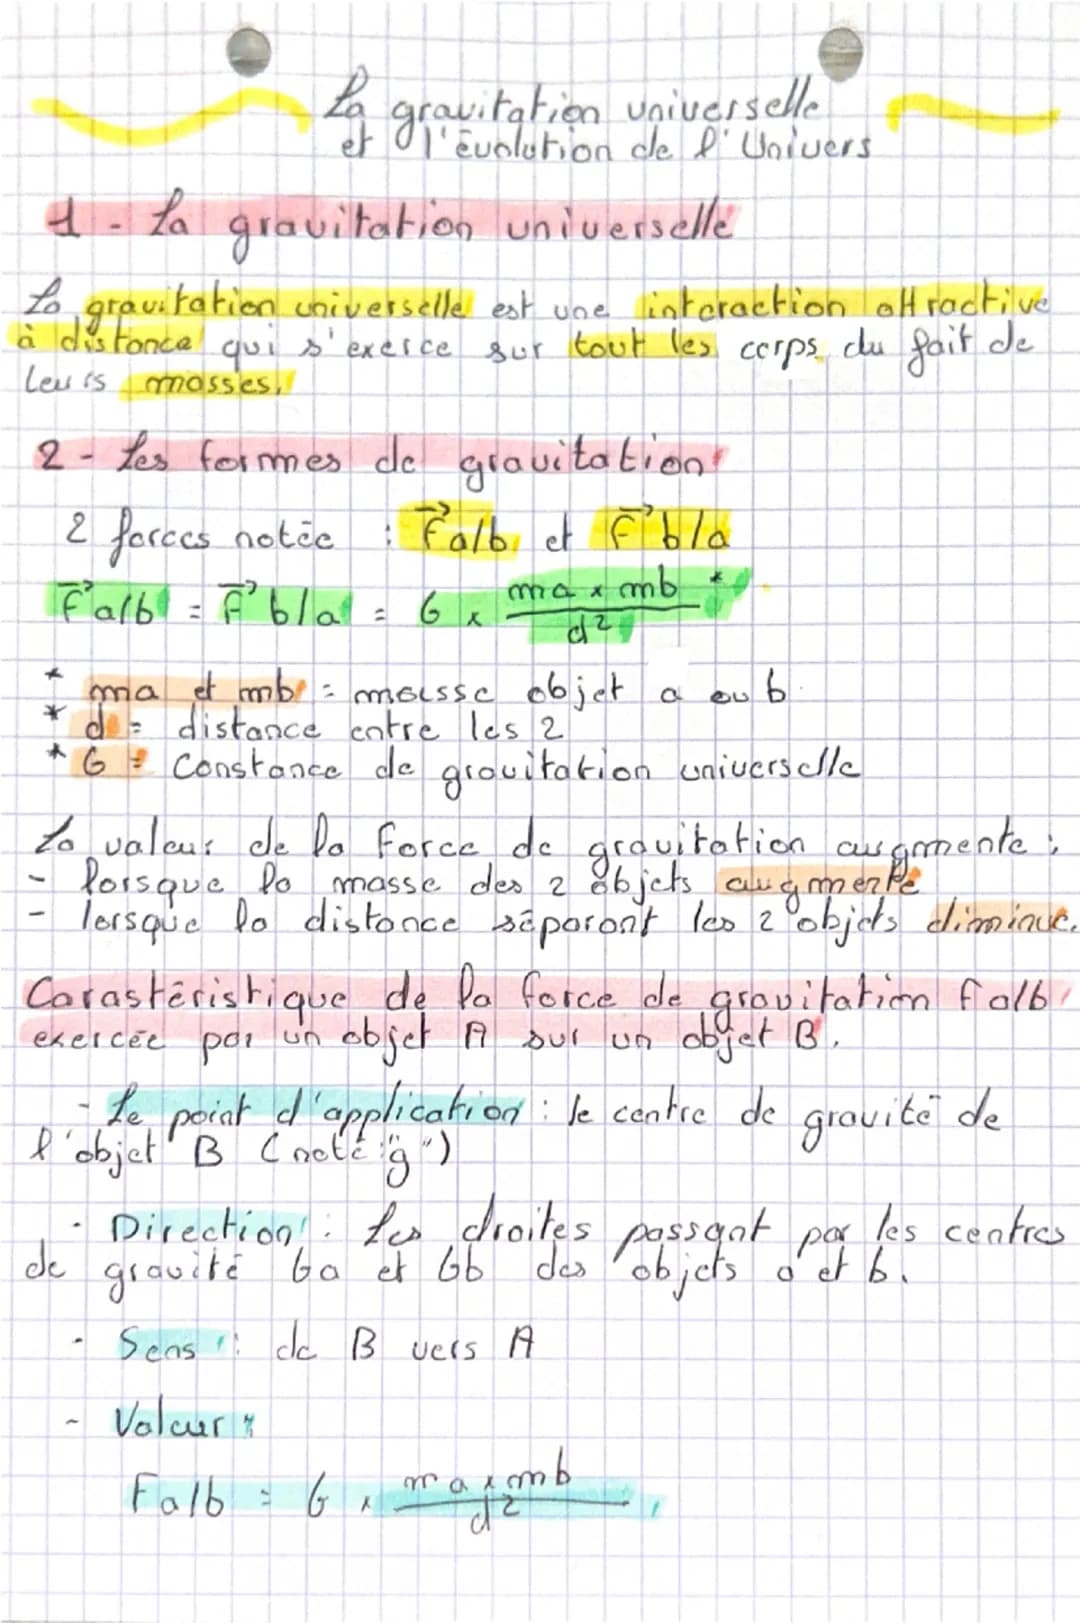 La gravitation universelle
et l'évolution de l'Univers
1 - La gravitation universelle
La gravitation universelle est une interaction attractive
à distance qui s'exerce sur tout les corps du fait de
leurs masses.
2 - Les formes de gravitation
2 forces notée : F⃗a/b et F⃗b/a
F⃗a/b = F⃗b/a = G x (ma x mb)/d² *
* ma et mb = masse objet a ou b
* d = distance entre les 2
* G = Constance de gravitation universelle
La valeur de la force de gravitation augmente :
- lorsque la masse des 2 objets augmente
- lorsque la distance séparant les 2 objets diminue.
Carastéristique de la force de gravitation fa/b
exercée par un objet A sur un objet B.
- Le point d'application : le centre de gravité de
l'objet B (noté "g")
- Direction : Les droites passant par les centres
de gravité Ga et Gb des objets a et b.
- Sens : de B vers A
- Valeur :
Fa/b = G x (ma x mb)/d²